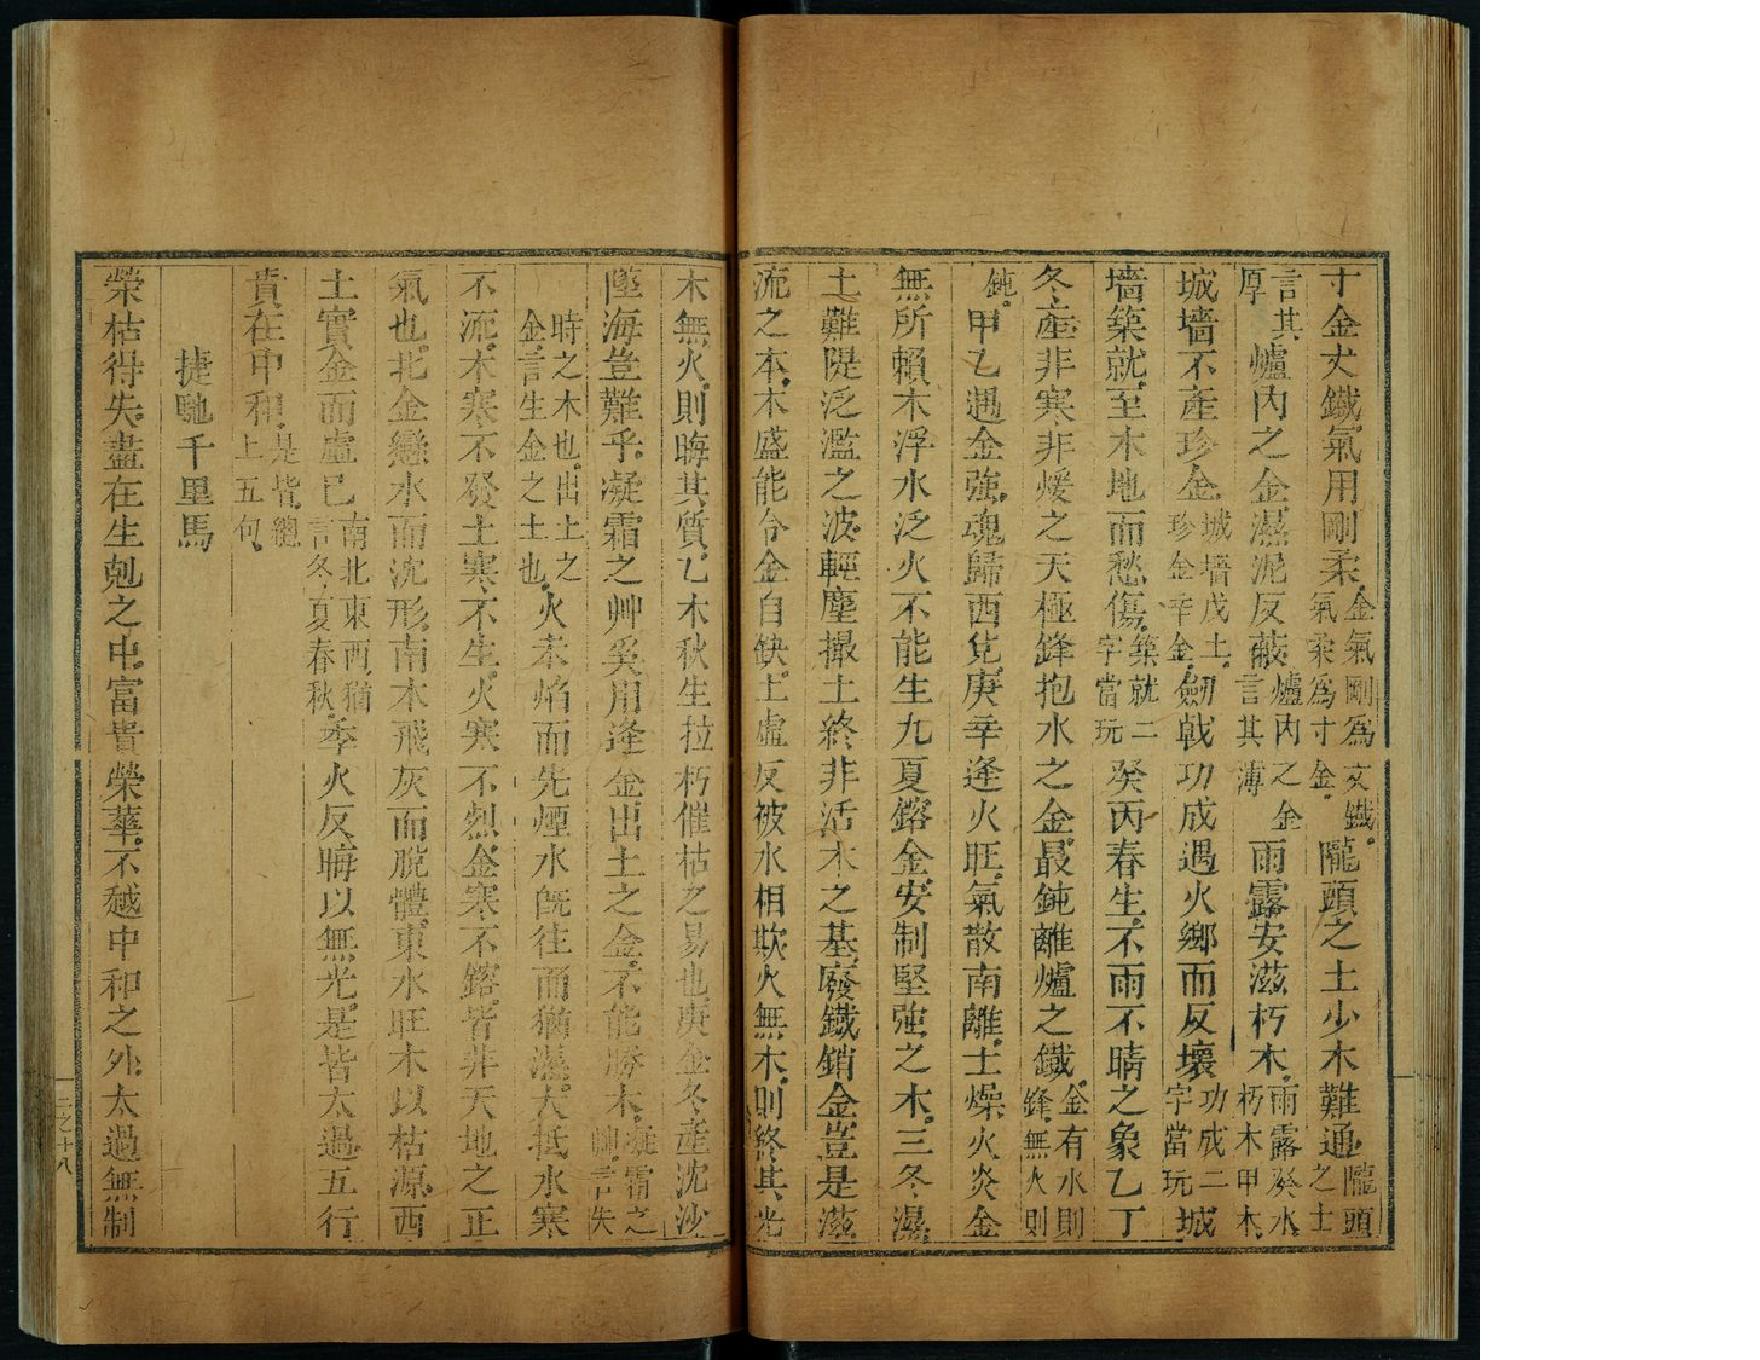 寸金丈鐵氣用剛柔金氣剛爲丈鐵氣柔爲寸金隴頭之土少木難通隴頭之土
言其厚爐內之金濕泥反蔽爐內之金言其薄雨露安滋朽木雨露癸水朽木甲木
城墻不產珍金城墻戊土珍金辛金劒戟功成遇火鄉而反壞功成二字當玩城
墻築就至木地而愁傷築就二字當玩癸丙春生不雨不晴之象乙丁
冬產非寒非煖之天極鋒抱水之金最鈍離爐之鐵金有水則鋒無火則
鈍甲乙遇金強魂歸西兌庚辛逢火旺氣散南離土燥火炎金
無所賴木浮水泛火不能生九夏鎔金安制堅強之木三冬濕
土難隄泛濫之波輕塵撮土終非活木之基廢鐵銷金豈是滋
流之本木盛能令金自缺土虛反被水相欺火無木則終其光
木無火則晦其質乙木秋生拉朽催枯之易也庚金冬產沈沙
墜海豈難乎凝霜之艸奚用逢金出土之金不能勝木凝霜之艸言失
時之木也出土之金言生金之土也火未焰而先煙水旣往而猶濕大抵水寒
不流木寒不發土寒不生火寒不烈金寒不鎔皆非天地之正
氣也北金戀水而沈形南木飛灰而脫體東水旺木以枯源西
土實金而虛己南北東西猶言冬夏春秋季火反晦以無光是皆太過五行
貴在中和是皆總上五句
捷馳千里馬
榮枯得失盡在生剋之中富貴榮華不越中和之外太過無制
三之十八